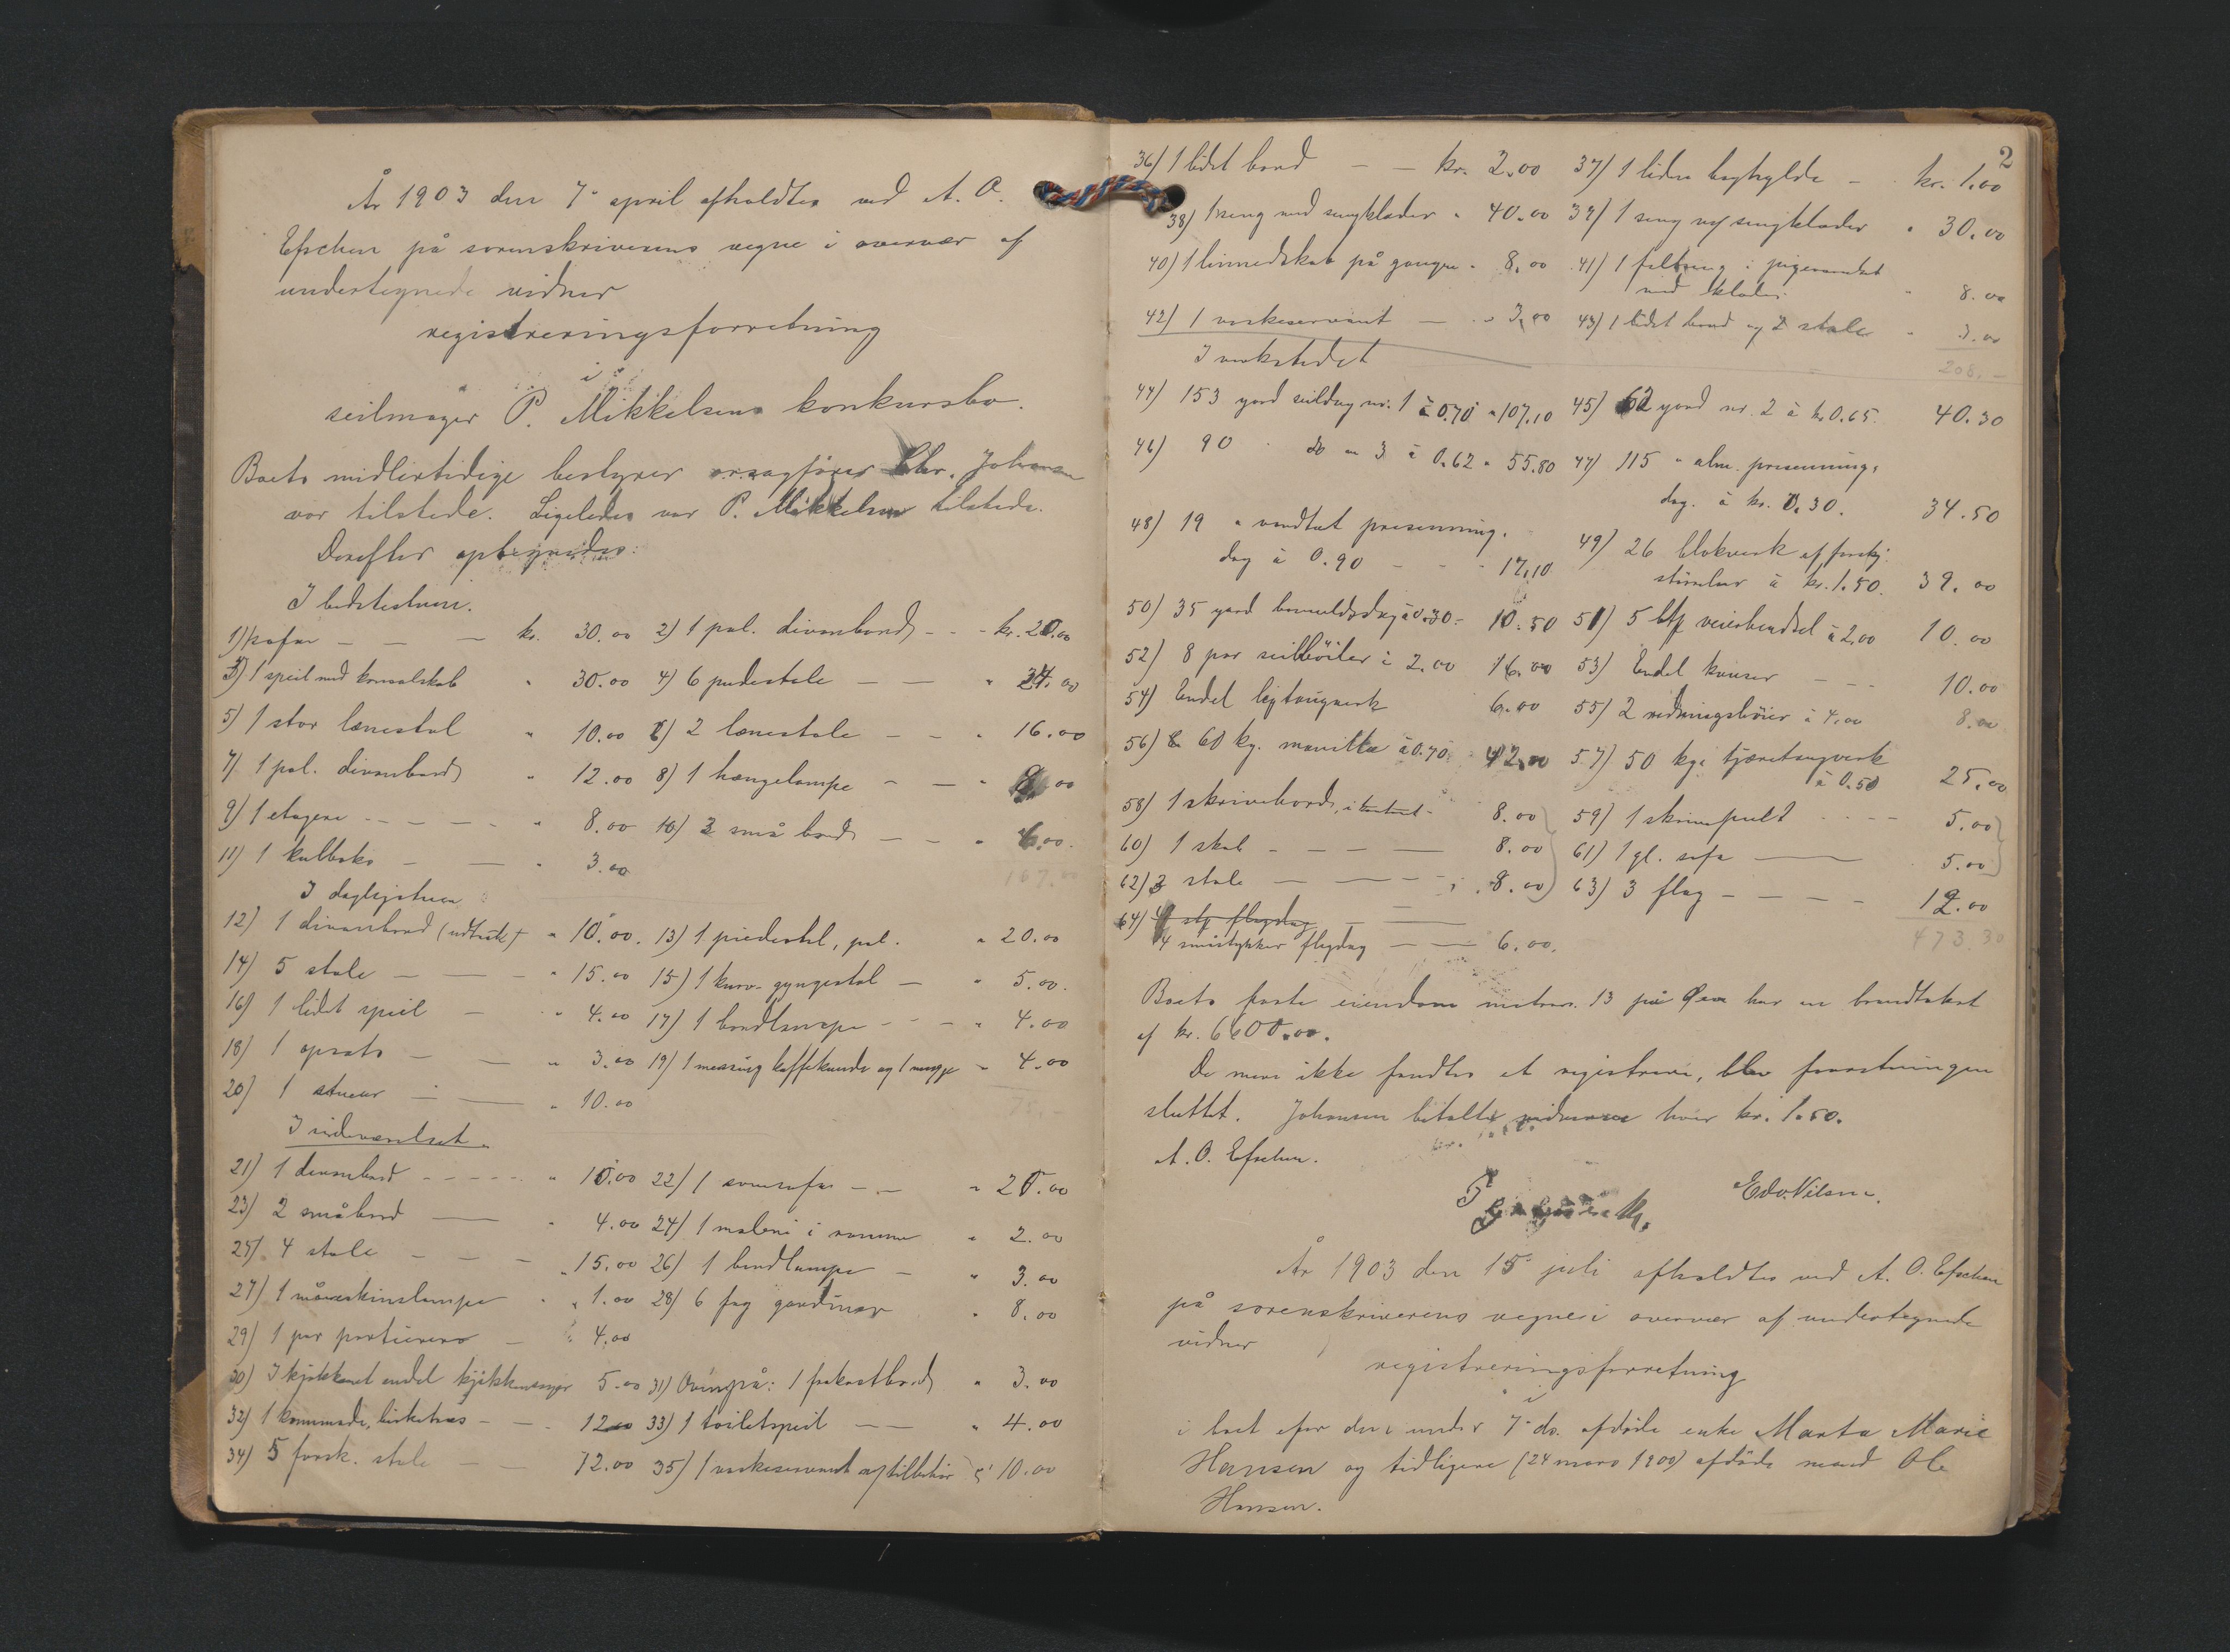 År 1903 den 7de april afholdtes ved A. O.
Efschen på sorenskriverens vegne i overvær af
undertegnede vidner
registreringsforretning
i
seilmager P. Mikkelsens konkursbo.
Boets midlertidige bestyrer orsagfører Chr. Johansen
var tilstede. Ligeledes var P. Mikkelsen tilstede.
Derefter optegnedes:
I bedstestuen.
1) sofa — — — kr. 30.00 2) 1 pol. divanbord - - - kr. 20.00
3) 1 speil med konsolskab " 30.00 4) 6 pudestole — — " 24.00
5) 1 stor lænestol " 10.00 6) 2 lænestole — - " 16.00
7) 1 pol. divanbord " 12.00 8) 1 hængelampe - — " 8.00
9) 1 etagere - - - - - " 8.00 10) 2 små bord — - " 6.00.
11) 1 kulboks - — " 3.00
167.00
I dagligstuen
12) 1 divanbord (udtræk) " 10.00. 13) 1 piedestal, pol. " 20.00
14) 5 stole — — - " 15.00 15) 1 kurv-gyngestol — " 5.00.
16) 1 lidet speil — " 4.00 17) 1 bordlampe - - — " 4.00
18) 1 opsats — — " 3.00 19) 1 messing kaffekande og 1 mugge " 4.00
20) 1 stueur — — " 10.00
75.—
I sideværelset.
21) 1 divanbord - - - - - " 10.00 22) 1 sovesofa - - — " 20.00
23) 2 småbord — " 4.00 24) 1 maleri i ramme " 2.00
25) 4 stole - — - " 15.00 26) 1 bordlampe — " 3.00
27) 1 måneskinslampe " 1.00 28) 6 fag gardiner " 8.00
29) 1 par portierers — " 4.00
30) I kjøkkenet endel kjøkkensager 5.00 31) Ovenpå: 1 frokostbord " 3.00
32) 1 kommode, birketræs - — - 12.00 33) 1 toiletspeil — — " 4.00
34) 5 forsk. stole — — 12.00 35) 1 vaskeservant og tilbehør " 10.00
2
36) 1 lidet bord — — kr. 2.00 37) 1 liden boghylde - kr. 1.00
38) 1 seng med sengklæder " 40.00 39) 1 seng og sengklæder " 30.00
40) 1 linnedskab på gangen " 8.00 41) 1 feltseng i pigeværelset
med klæder " 8.00
42) 1 vaskeservant — " 3.00 43) 1 lidet bord og 2 stole " 3.00
208.—
I verkstedet
44) 153 yard seildug nr. 1 à 0.70 " 107.10 45) 62 yard nr. 2 à kr. 0.65. 40.30
46) 90 " do " 3 à 0.62 " 55.80 47) 115 " alm. presenning.
dug. à kr. 0.30. 34.50
48) 19 " vandtæt presenning.
dug à 0.90 - - - 17.10
49) 26 blokverk af forskj.
størrelser à kr. 1.50. 39.00
50) 35 yard bomuldsdug à 0.30 = 10.50 51) 5 veierhendsel à 2.00 10.00
52) 8 par seilbøiler à 2.00 16.00 53) Endel kauser — - - 10.00
54) Endel ligtaugverk 6.00 55) 2 redningsbøier à 4.00 8.00
56) 60 kg. manilla à 0.70 42.00 57) 50 kg. tjæretaugverk
à 0.50 25.00
58) 1 skrivebord, i kontoret - 8.00 59) 1 skrivepult - - - - 5.00
60) 1 skab - - - — 8.00 61) 1 gl. sofa — 5.00
62) 3 stole — — - - " 8.00 63) 3 flag - - - - 12.00
64) 4 flagdug — —
4 småstykker flagdug — — 6.00.
473.30
Boets faste eiendom matrnr. 13 på Øen har en brandtakst
af kr. 6600.00.
Da mere ikke fandtes at registrere, blev forretningen
sluttet. Johansen betalte vidnerne hver kr. 1.50.
A. O. Efschen.
Edv. Nilsen.
År 1903 den 15de juli afholdtes ved A. O. Efschen
på sorenskriverens vegne i overvær af undertegnede
vidner
registreringsforretning
i
i boet efter den under 7de ds. afdøde enke Marta Marie
Hansen og tidligere (24 mars 1900) afdøde mand Ole
Hansen.